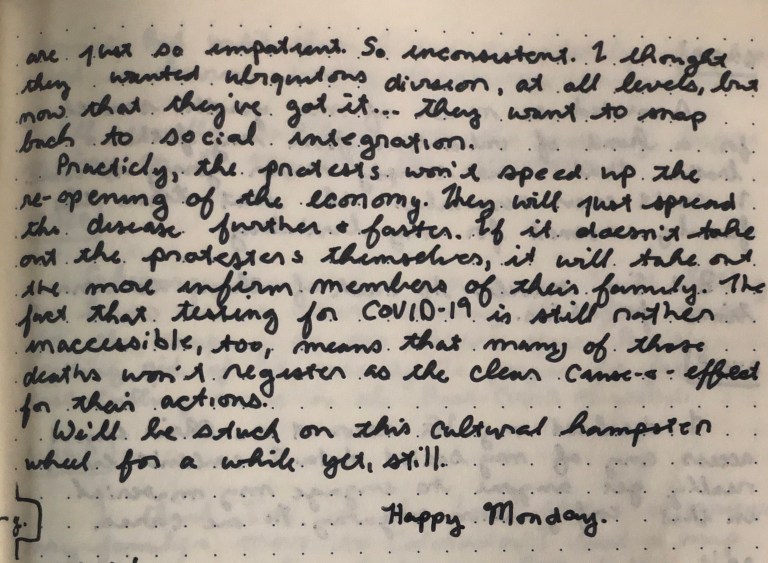 are just so impatient. So inconsistent. I thought
they wanted ubiquitous division, at all levels, but
now that they've got it... They want to snap
back to social integration.
Practicly, the protests won't speed up the
re-opening of the economy. They will just spread
the disease further & faster. If it doesn't take
out the protesters themselves, it will take out
the more infirm members of their family. The
fact that testing for COVID-19 is still rather
inaccessible, too, means that many of those
deaths won't register as the clear cause-&-effect
for their actions.
We'll be stuck on this cultural hampster
wheel for a while yet, still.
Happy Monday.